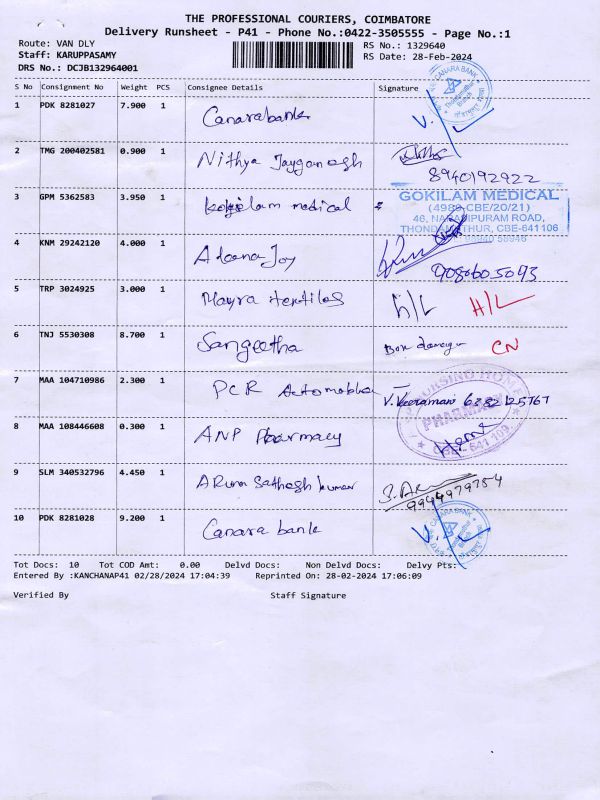 THE PROFESSIONAL COURIERS, COIMBATORE
Delivery Runsheet - P41 - Phone No.:0422-3505555 - Page No.:1
Route: VAN DLY RS No.: 1329640
Staff: KARUPPASAMY RS Date: 28-Feb-2024
DRS No.: DCJB132964001
S No Consignment No Weight PCS Consignee Details Signature
1 PDK 8281027 7.900 1 Canara bank
CANARA BANK
2 TMG 200402581 0.900 1 Nithya
8940192922
3 GPM 5362583 3.950 1 Kokilam medical
GOKILAM MEDICAL
(4989 CBE/20/21)
46, NARASIPURAM ROAD,
THONDAMUTHUR, CBE-641106
4 KNM 29242120 4.000 1 Joy
5 TRP 3024925 3.000 1 Mayra textiles H/L H/L
6 TNJ 5530308 8.700 1 Sangeetha Box CN
7 MAA 104710986 2.300 1 PCR Automobles V. Veeramani 6382125767
NURSING HOME
PHARMACY
641 109
8 MAA 108446608 0.300 1 ANP Pharmacy
9 SLM 340532796 4.450 1 Arun Sathesh kumar
10 PDK 8281028 9.200 1 Canara bank
CANARA BANK
Tot Docs: 10 Tot COD Amt: 0.00 Delvd Docs: Non Delvd Docs: Delvy Pts:
Entered By :KANCHANAP41 02/28/2024 17:04:39 Reprinted On: 28-02-2024 17:06:09
Verified By Staff Signature